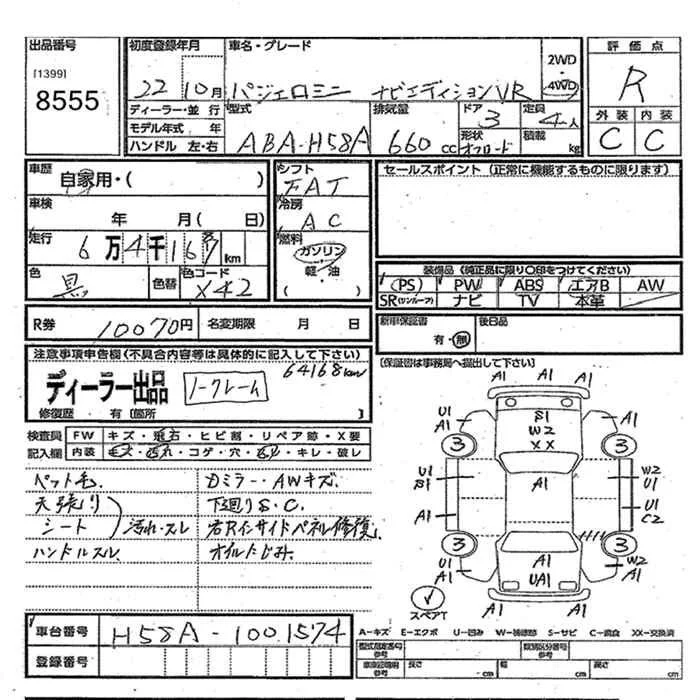 出品番号
[1399]
8555
初度登録年月
22 10月
車名・グレード
パジェロミニ ナビエディションVR
2WD
・
4WD
ディーラー・並行
モデル年式 年
ハンドル 左・右
型式
ABA-H58A
排気量
660 cc
ドア
3
形状
オフロード
定員
4人
積載
kg
評価点
R
外装 内装
C C
車歴
自家用・( )
車検
年 月( 日)
走行
6万4千167 km
色
黒
色替
色コード
X42
シフト
FAT
冷房
AC
燃料
ガソリン
軽・油
( )
セールスポイント(正常に機能するものに限ります)
装備品(純正品に限り○印をつけてください)
PS PW ABS エアB AW
SR(サンルーフ) ナビ TV 本革
R券
10070円
名変期限 月 日
新車保証書
有・無
後日品
注意事項申告欄(不具合内容等は具体的に記入して下さい)
64168km
ディーラー出品 ノークレーム
修復歴 有〔箇所 〕
[保証書は事務局へ提出して下さい]
検査員
記入欄
FW キズ・飛石・ヒビ割・リペア跡・X要
内装 毛大・汚れ・コゲ・穴・・キレ・破レ
ペット毛.
天張り
シート 汚れ・スレ
ハンドルスレ.
Dミラー・AWキズ.
下廻りS.C.
右Rインサイドパネル修復.
オイルにじみ.
A1
A1
U1
A1
S1
W2
XX
A1
3
3
U1
S1
A1
W2
U1
A1
U1
C2
3
3
U1
A1
A1
UA1
W2
A1
A1
スペアT
車台番号
H58A-1001574
登録番号
A-キズ E-エクボ U-凹み W-補修跡 S-サビ C-腐食 XX-交換済
型式指定番号
参考
類別区分番号
参考
車庫証明用
参考
長さ cm
幅 cm
高さ cm